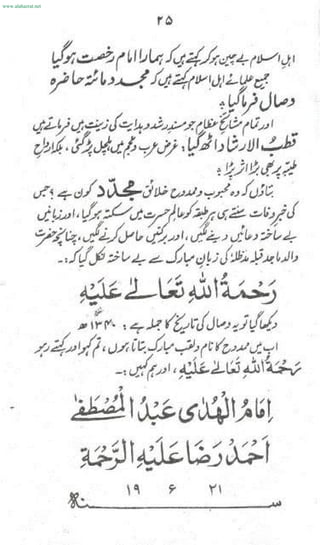 www.alahazrat.net
۲۵
اہل اسلام بے چین ہو کر کہتے ہیں کہ ہمارا امام رخصت ہوگیا
جمیع علمائے اہل اسلام کہتے ہیں کہ مجدد مائۃ حاضرہ
وصال فرما گیا؛
اور تمام مشائخ عظام جو مسند رشد و ہدایت کی زینت ہیں فرماتے ہیں
قطب الارشاد اٹھ گیا؛ غرض عرب و عجم میں ہلچل پڑ گئی، بلکہ ارواح
طیبہ پر بھی بڑا اثر پڑا؛
بتاؤں کہ وہ محبوب و ممدوح خلائق مجدد کون ہے؟ جس
کی خبر وفات سنتے ہی ہر طبقہ کو عالم حسرت میں سکتہ ہوگیا، اور زبانیں
بے ساختہ دعائیں دینے لگیں، اور برکتیں حاصل کرنے لگیں، چنانچہ حضرت
والد ماجد قبلہ مدظلہ کی زبان مبارک سے بے ساختہ نکل گیا کہ:۔
رَحْمَةُ اللّٰهِ تَعَالٰى عَلَيْهِ
دیکھا گیا تو یہ وصال کی تاریخ کا جملہ ہے: ۱۳۴۰ھ
اب میں ممدوح کا نام و لقب مبارک بتاتا ہوں، تم کہو اور کہتے رہو
رَحْمَةُ اللّٰهِ تَعَالٰى عَلَيْهِ، اور ہم کہیں:۔
اِمَامُ الْهُدٰى عَبْدُ الْمُصْطَفٰے
اَحْمَدْ رَضَا عَلَيْهِ الرَّحْمَة
۱۹ ۶ ۲۱
سنہ